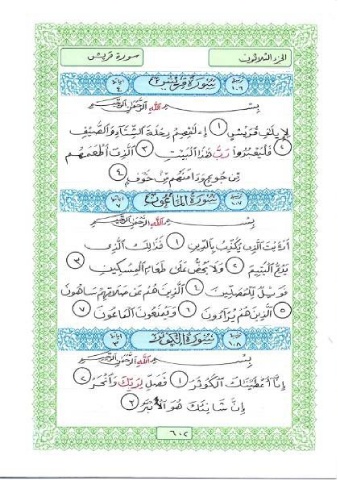 سورة قريش الجزء الثلاثون
١٠٦ سورة قريش ٤
بسم الله الرحمن الرحيم
لإيلاف قريش ١ إيلافهم رحلة الشتاء والصيف
٢ فليعبدوا رب هذا البيت ٣ الذي أطعمهم
من جوع وءامنهم من خوف ٤
١٠٧ سورة الماعون ٧
بسم الله الرحمن الرحيم
أرءيت الذي يكذب بالدين ١ فذلك الذي
يدع اليتيم ٢ ولا يحض على طعام المسكين ٣
فويل للمصلين ٤ الذين هم عن صلاتهم ساهون
٥ الذين هم يراءون ٦ ويمنعون الماعون ٧
١٠٨ سورة الكوثر ٣
بسم الله الرحمن الرحيم
إنا أعطيناك الكوثر ١ فصل لربك وانحر ٢
إن شانئك هو الأبتر ٣
٦٠٢